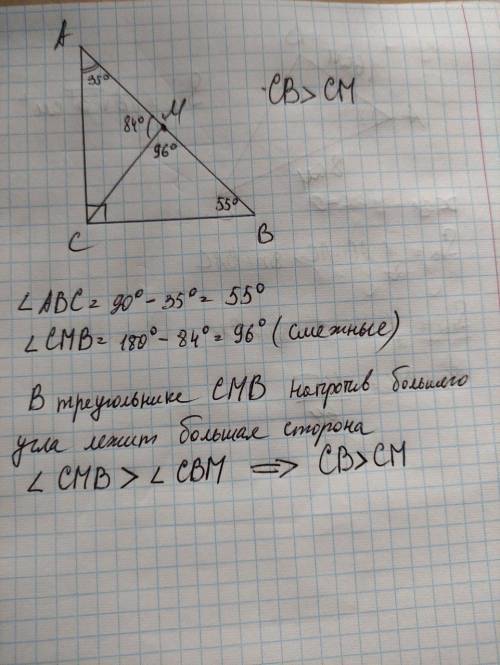 A
35°
CB > CM
84°
M
96°
55°
C
B
∠ABC = 90° - 35° = 55°
∠CMB = 180° - 84° = 96° (смежные)
В треугольнике CMB напротив большего
угла лежит большая сторона
∠CMB > ∠CBM ⟹ CB > CM